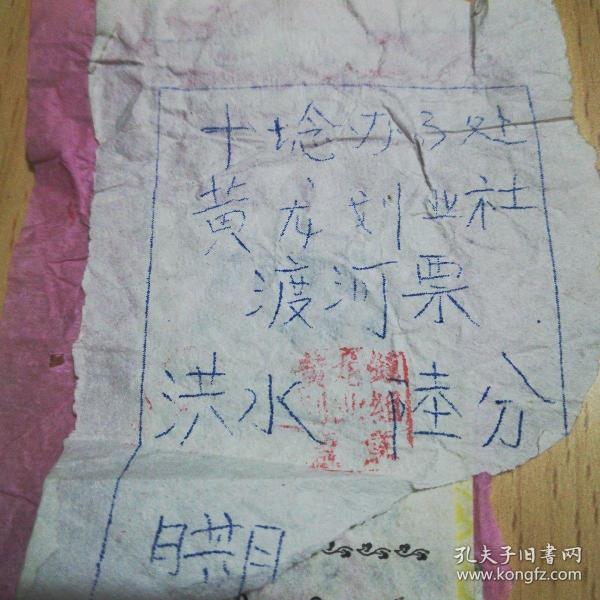 十埝办了处
黄龙划业社
渡河票
洪水 陆分
日期
孔夫子旧書网
www.kongfz.com